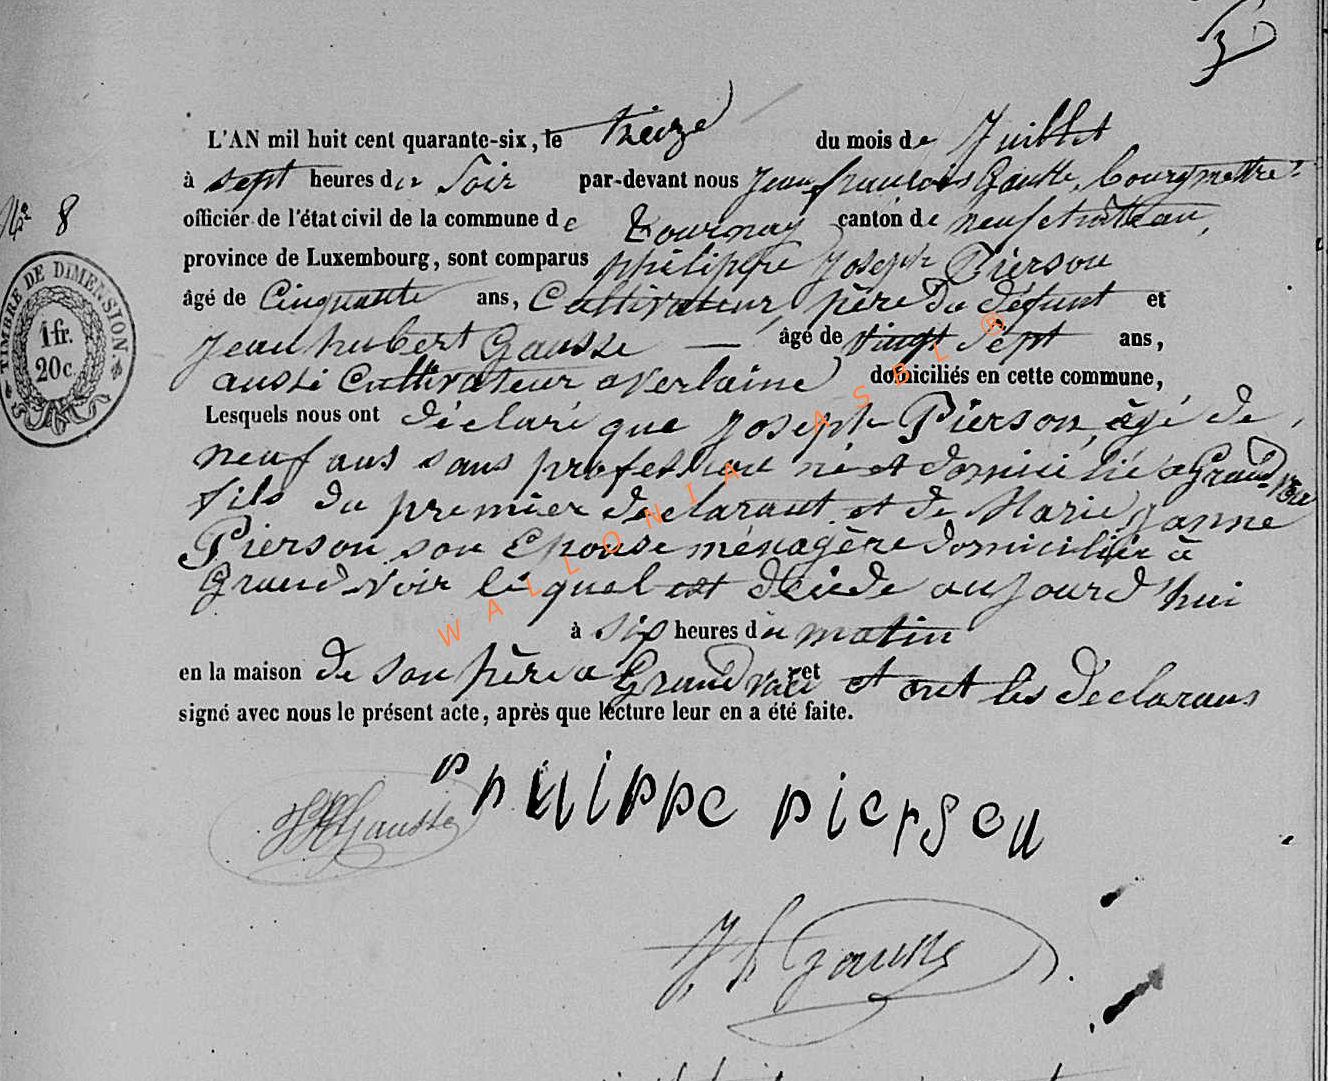 3
L'AN mil huit cent quarante-six, le treize du mois de Juillet
à sept heures du Soir par-devant nous Jean françois Gausse, bourgmettre
Nº 8
officier de l'état civil de la commune de tournay canton de neufchâteau,
province de Luxembourg, sont comparus philippe Joseph Pierson
âgé de Cinquante ans, Cultivateur, père du défunt et
Jean hubert Gausse — âgé de vingt sept ans,
aussi Cultivateur a Verlaine domiciliés en cette commune,
Lesquels nous ont déclaré que Joseph Pierson, âgé de
neuf ans sans profession né et domicilié a Grandvoir
fils du premier declarant et de Marie Janne
Pierson son Epouse ménagère domiciliée à
Grand-Voir lequel est décédé aujourd'hui
à six heures du matin
en la maison de son père a Grandvoir et et ont les déclarans
signé avec nous le présent acte, après que lecture leur en a été faite.
TIMBRE DE DIMENSION.
1 fr.
20 c.
WALLONIA ASBL ®
Philippe pierson
JH Gausse
J. f. Gausse